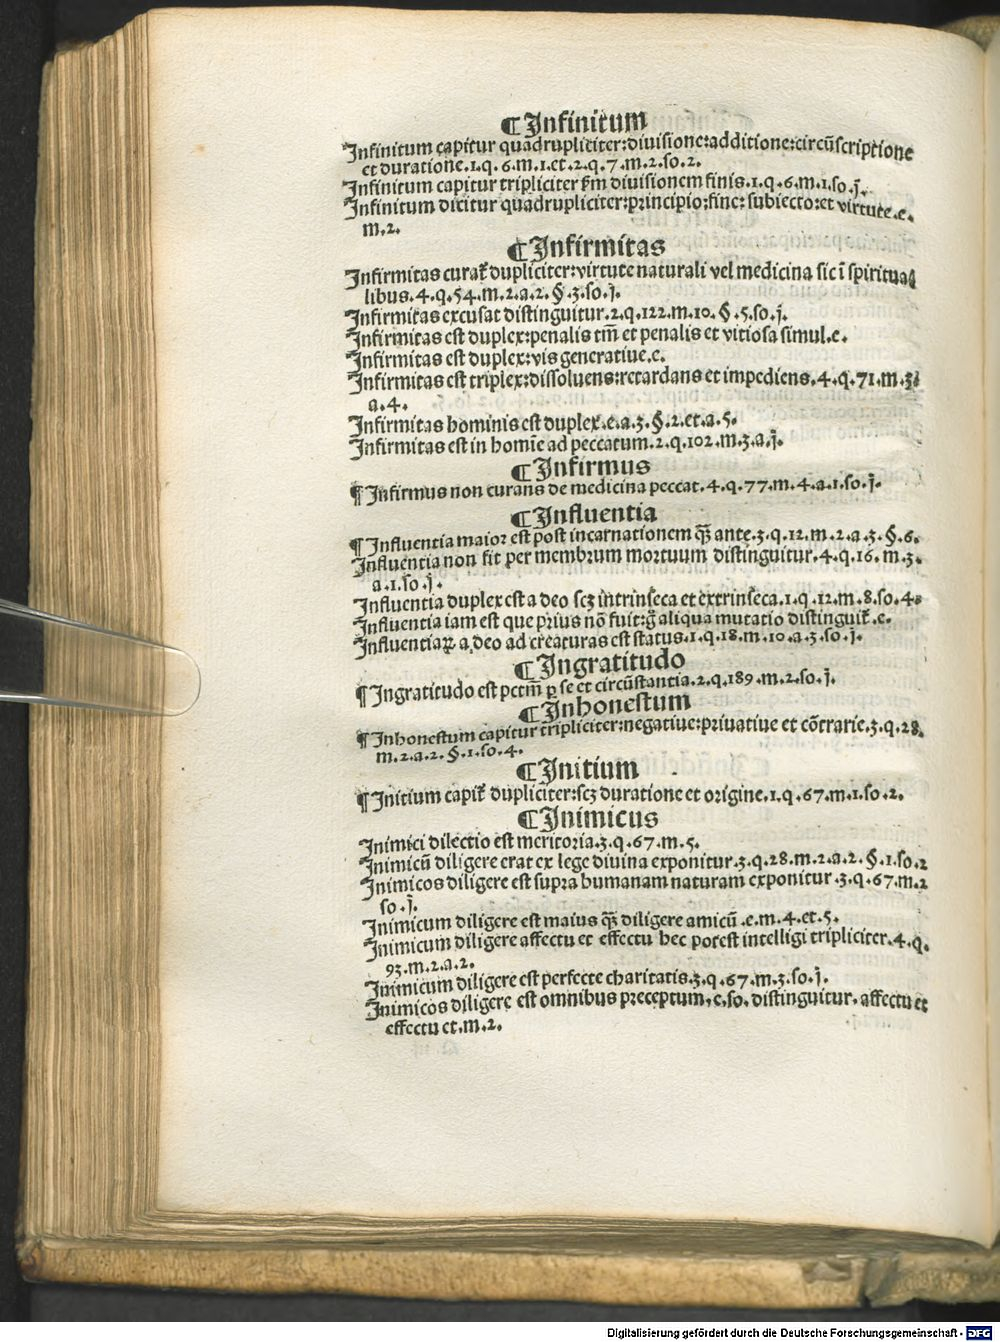 ¶Infinitum
Infinitum capitur quadrupliciter:diuisione:additione:circūscriptione
et duratione.1.q.6.m.1.et.2.q.7.m.2.so.2.
Infinitum capitur tripliciter ẜm diuisionem finis.1.q.6.m.1.so.j̄.
Infinitum dicitur quadrupliciter:principio:fine:subiecto:et virtute.e.
m.2.
¶Infirmitas
Infirmitas curat᷑ dupliciter:virtute naturali vel medicina sic ī spiritua
libus.4.q.54.m.2.a.2.§.3.so.j̄.
Infirmitas excusat distinguitur.2.q.122.m.10.§.5.so.j̄.
Infirmitas est duplex:penalis tm̄ et penalis et vitiosa simul.e.
Infirmitas est duplex:vis generatiue.e.
Infirmitas est triplex:dissoluens:retardans et impediens.4.q.71.m.3.
a.4.
Infirmitas hominis est duplex.e.a.3.§.2.et.a.5.
Infirmitas est in homīe ad peccatum.2.q.102.m.3.a.j̄.
¶Infirmus
¶Infirmus non curans de medicina peccat.4.q.77.m.4.a.1.so.j̄.
¶Influentia
¶Influentia maior est post incarnationem q̄ꝫ ante.3.q.12.m.2.a.3.§.6.
Influentia non fit per membrum mortuum distinguitur.4.q.16.m.3.
a.1.so.j̄.
Influentia duplex est a deo scꝫ intrinseca et extrinseca.1.q.12.m.8.so.4.
Influentia iam est que prius nō fuit:g̊ aliqua mutatio distinguit᷑.e.
Influentiaꝝ a deo ad creaturas est status.1.q.18.m.10.a.3.so.j̄.
¶Ingratitudo
¶Ingratitudo est pctm̄ ꝑ se et circūstantia.2.q.189.m.2.so.j̄.
¶Inhonestum
¶Inhonestum capitur tripliciter:negatiue:priuatiue et cōtrarie.3.q.28.
m.2.a.2.§.1.so.4.
¶Initium
¶Initium capit᷑ dupliciter:scꝫ duratione et origine.1.q.67.m.1.so.2.
¶Inimicus
Inimici dilectio est meritoria.3.q.67.m.5.
Inimicū diligere erat ex lege diuina exponitur.3.q.28.m.2.a.2.§.1.so.2
Inimicos diligere est supra humanam naturam exponitur.3.q.67.m.2
so.j̄.
Inimicum diligere est maius q̄ꝫ diligere amicū.e.m.4.et.5.
Inimicum diligere affectu et effectu hec potest intelligi tripliciter.4.q.
93.m.2.a.2.
Inimicum diligere est perfecte charitatis.3.q.67.m.3.so.j̄.
Inimicos diligere est omnibus preceptum.e.so.distinguitur.affectu et
effectu et.m.2.
Digitalisierung gefördert durch die Deutsche Forschungsgemeinschaft - DFG